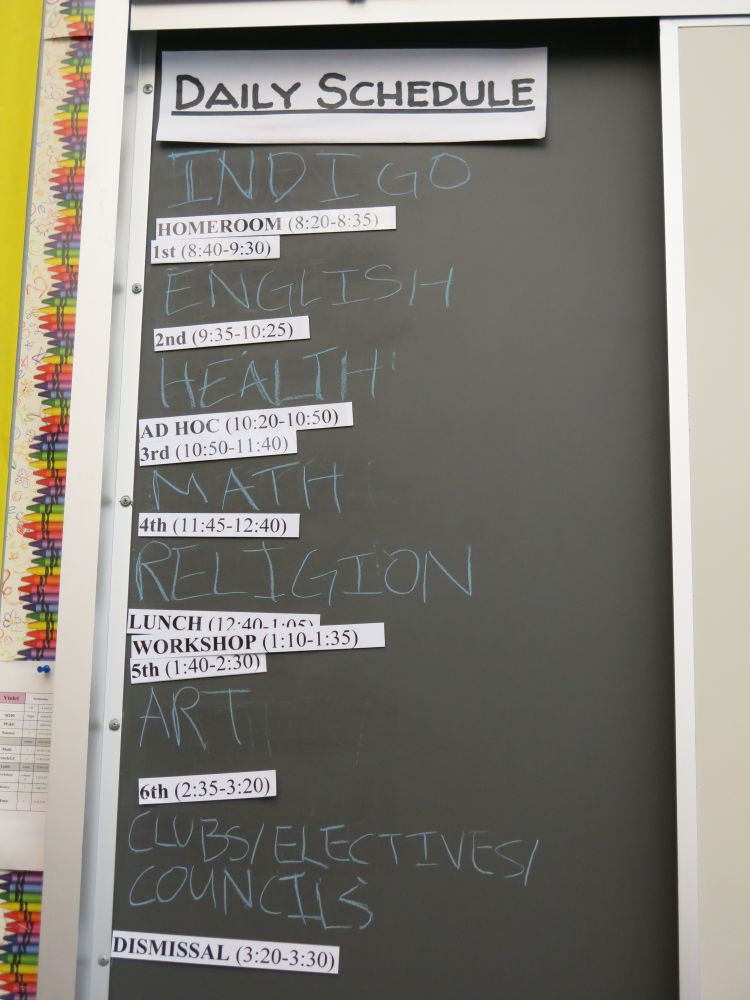 DAILY SCHEDULE
INDIGO
HOMEROOM (8:20-8:35)
1st (8:40-9:30)
ENGLISH
2nd (9:35-10:25)
HEALTH
AD HOC (10:20-10:50)
3rd (10:50-11:40)
MATH
4th (11:45-12:40)
RELIGION
LUNCH (12:40-1:05)
WORKSHOP (1:10-1:35)
5th (1:40-2:30)
ART
6th (2:35-3:20)
CLUBS/ELECTIVES/
COUNCILS
DISMISSAL (3:20-3:30)
Violet